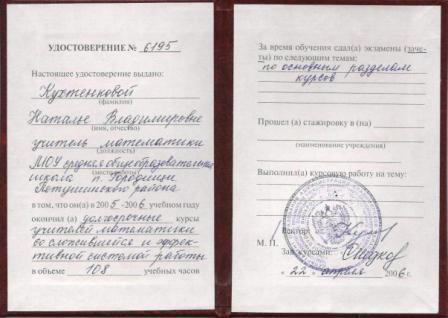 УДОСТОВЕРЕНИЕ № 6195
Настоящее удостоверение выдано:
Кухтенковой
(фамилия)
Наталье Владимировне
(имя, отчество)
учитель математики
(должность)
МОУ средняя общеобразовательная
(место работы)
школа п. Городищи
Петушинского района
в том, что он(а) в 2005-2006 учебном году
окончил (а) долгосрочные курсы
учителей математики
со сложившейся и эффек-
тивной системой работы
в объеме 108 учебных часов
За время обучения сдал(а) экзамены (заче-
ты) по следующим темам:
по основным разделам
курсов
Прошел (а) стажировку в (на)
(наименование учреждения)
Выполнил(а) курсовую работу на тему:
Ректор
М. П.
Зав. курсами:
« 22 » апреля 2006 г.